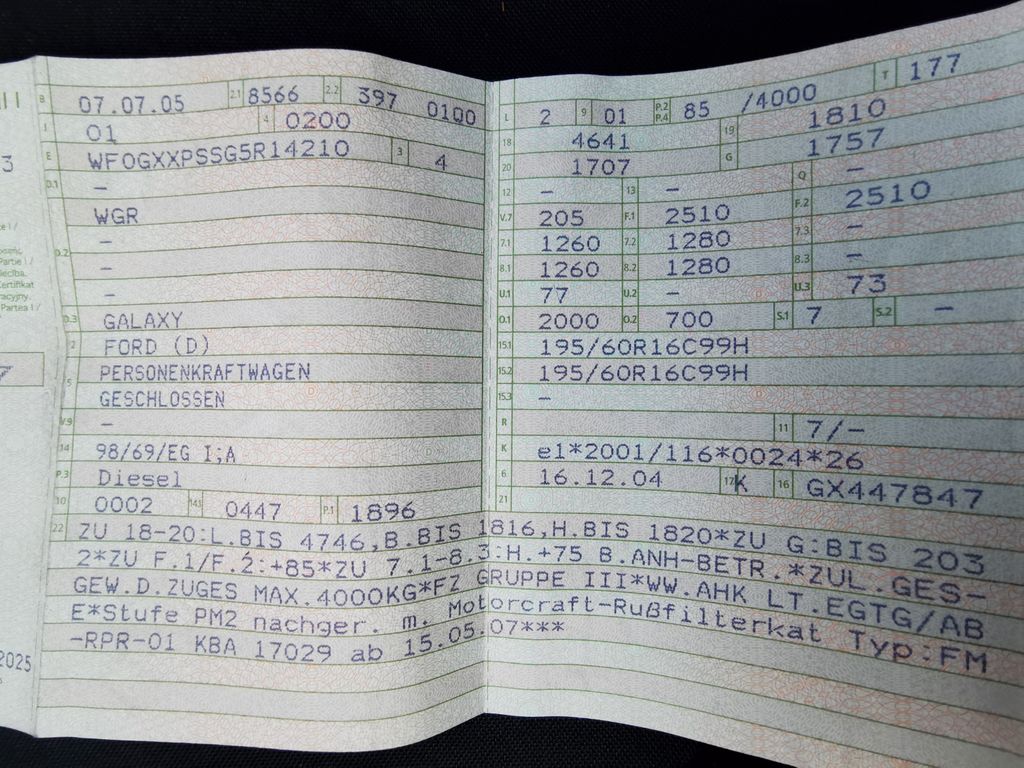 B 07.07.05 2.1 8566 2.2 397 0100
J 01 4 0200
E WF0GXXPSSG5R14210 3 4
D.1 –
WGR
D.2 –
–
–
D.3 GALAXY
2 FORD (D)
5 PERSONENKRAFTWAGEN
GESCHLOSSEN
V.9 –
14 98/69/EG I;A
P.3 Diesel
10 0002 14.1 0447 P.1 1896
L 2 9 01 P.2 P.4 85 /4000 T 177
18 4641 19 1810
20 1707 G 1757
12 – 13 – Q –
V.7 205 F.1 2510 F.2 2510
7.1 1260 7.2 1280 7.3 –
8.1 1260 8.2 1280 8.3 –
U.1 77 U.2 – U.3 73
O.1 2000 O.2 700 S.1 7 S.2 –
15.1 195/60R16C99H
15.2 195/60R16C99H
15.3 –
R 11 7/–
K e1*2001/116*0024*26
6 16.12.04 17 K 16 GX447847
21
22 ZU 18-20:L.BIS 4746,B.BIS 1816,H.BIS 1820*ZU G:BIS 203
2*ZU F.1/F.2:+85*ZU 7.1-8.3:H.+75 B.ANH-BETR.*ZUL.GES-
GEW.D.ZUGES MAX.4000KG*FZ GRUPPE III*WW.AHK LT.EGTG/AB
E*Stufe PM2 nachger. m. Motorcraft-Rußfilterkat Typ:FM
-RPR-01 KBA 17029 ab 15.05.07***
3
Partie I /
Partea I /
2025